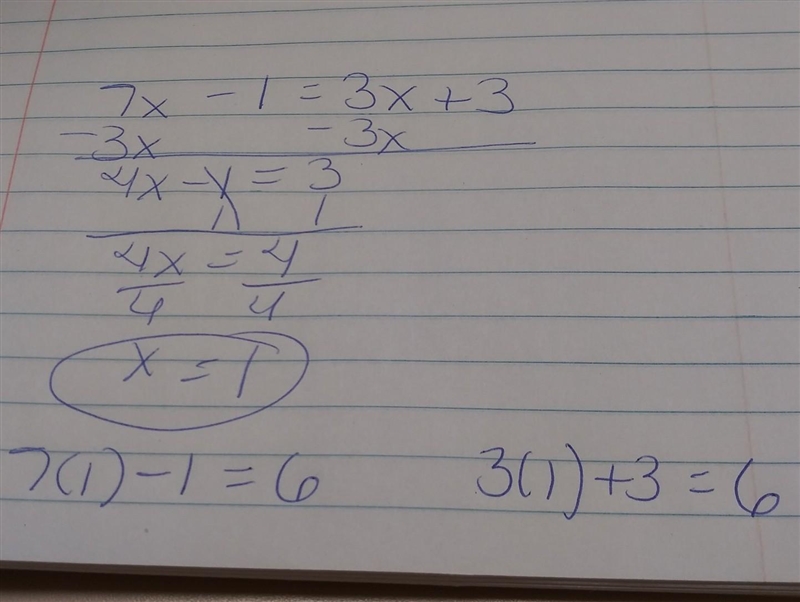 7x - 1 = 3x + 3
-3x -3x
4x - 1 = 3
1 1
4x = 4
4 4
x = 1
7(1) - 1 = 6 3(1) + 3 = 6